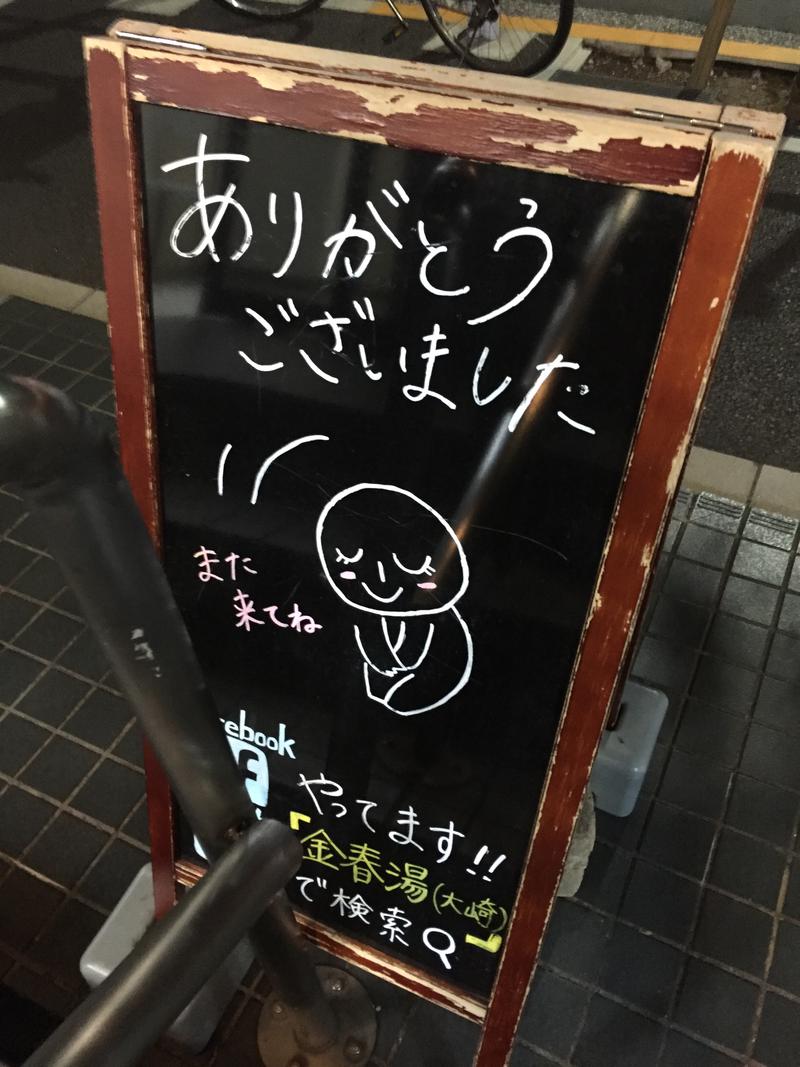 ありがとう
ございました
また
来てね
ebook
やってます!!
「金春湯(大崎)」
で検索